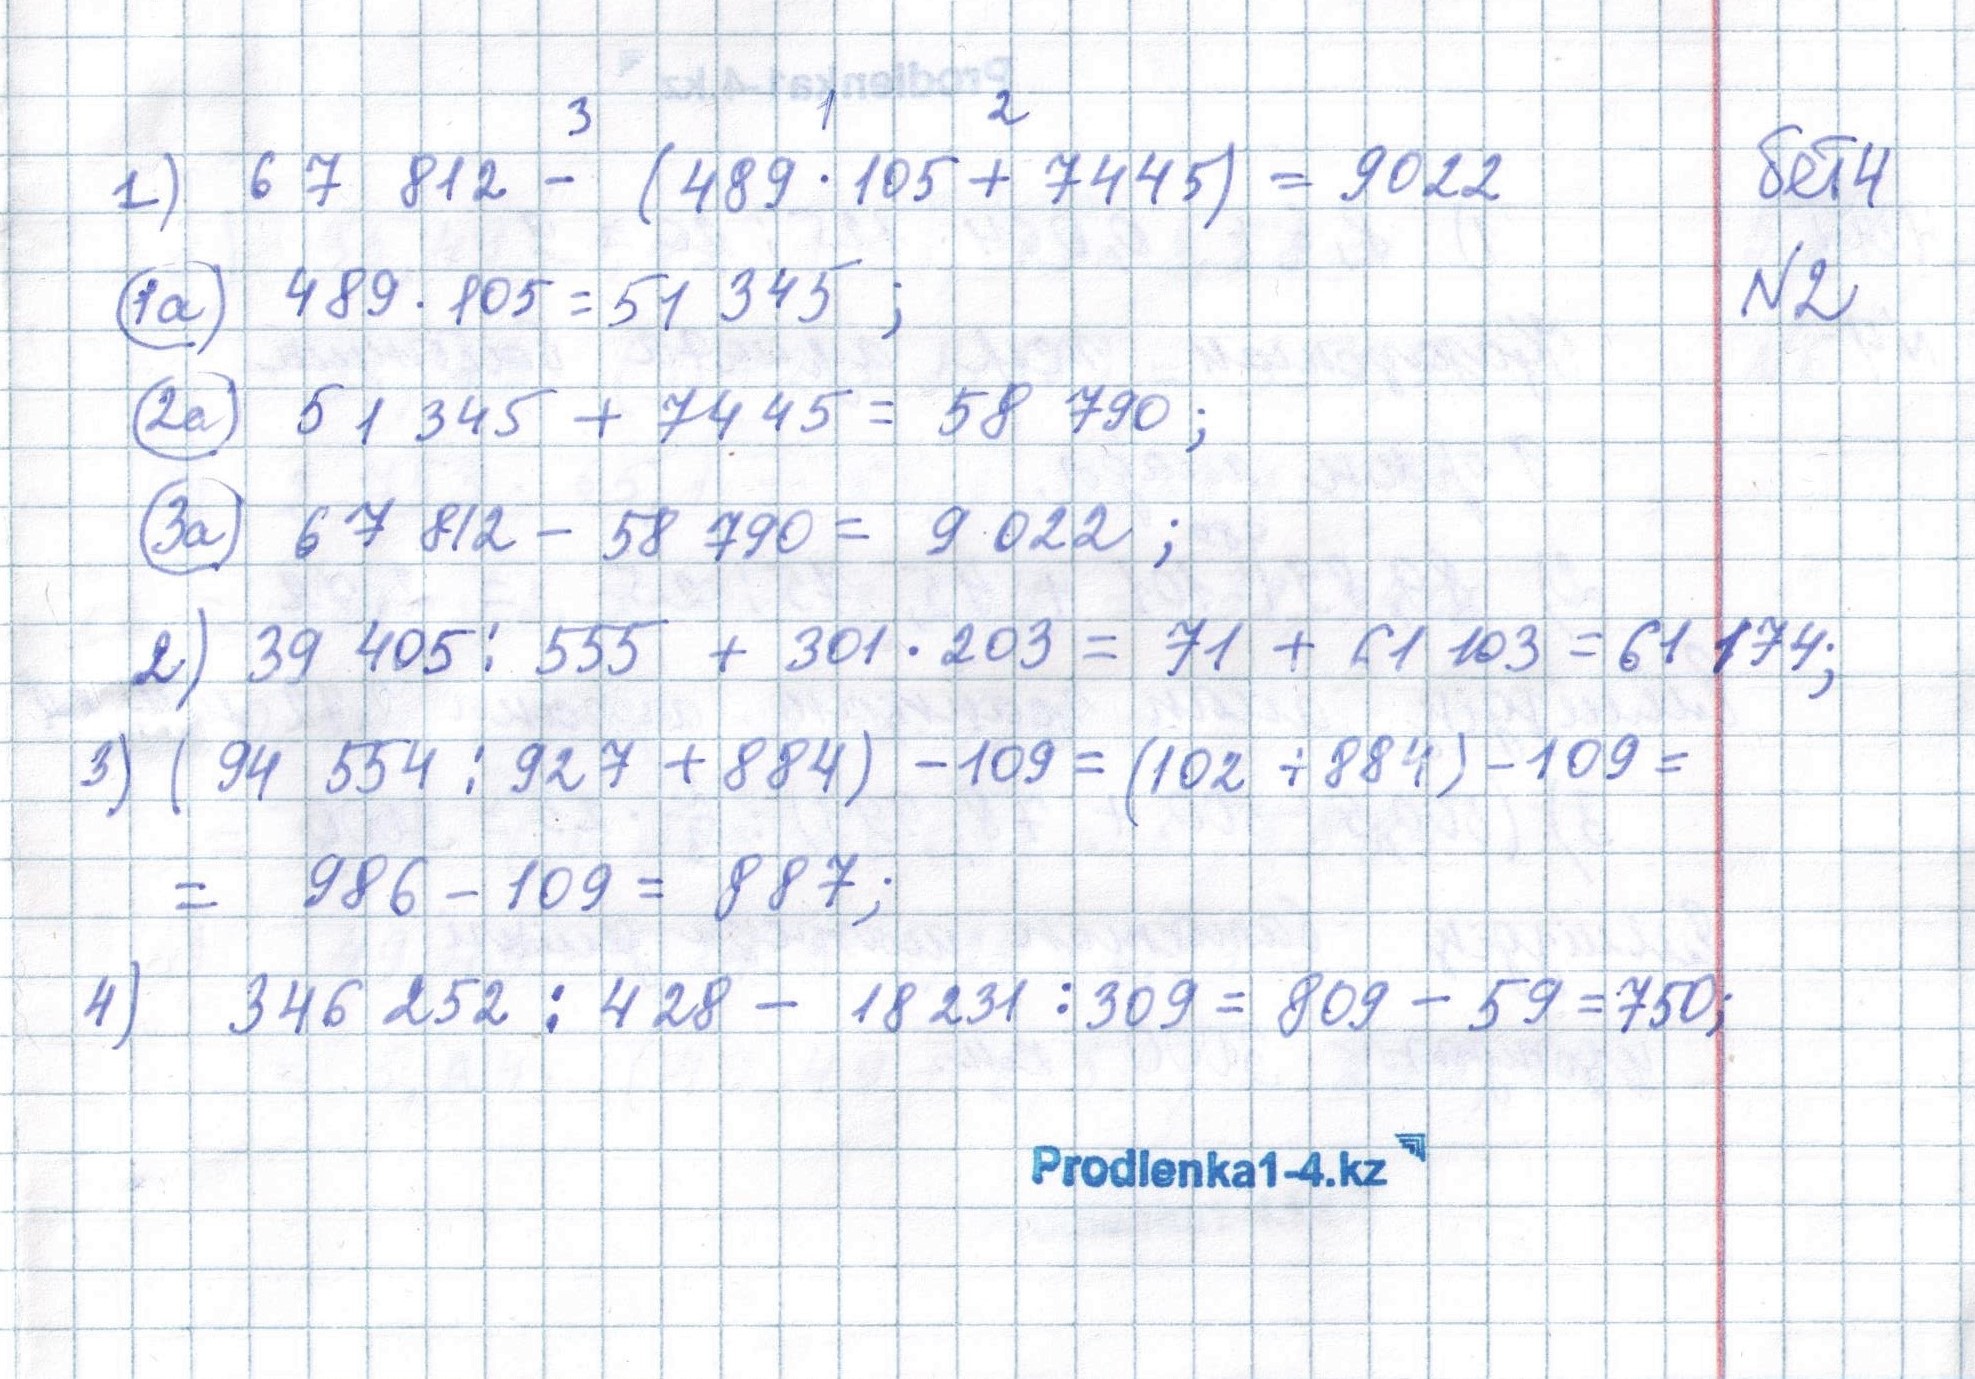 3 1 2
1) 67 812 - (489 · 105 + 7445) = 9022
бет 4
1а) 489 · 105 = 51 345 ;
N2
2а) 51 345 + 7445 = 58 790 ;
3а) 67 812 - 58 790 = 9 022 ;
2) 39 405 : 555 + 301 · 203 = 71 + 61 103 = 61 174;
3) (94 554 : 927 + 884) - 109 = (102 + 884) - 109 =
= 986 - 109 = 887;
4) 346 252 : 428 - 18 231 : 309 = 809 - 59 = 750;
Prodlenka1-4.kz